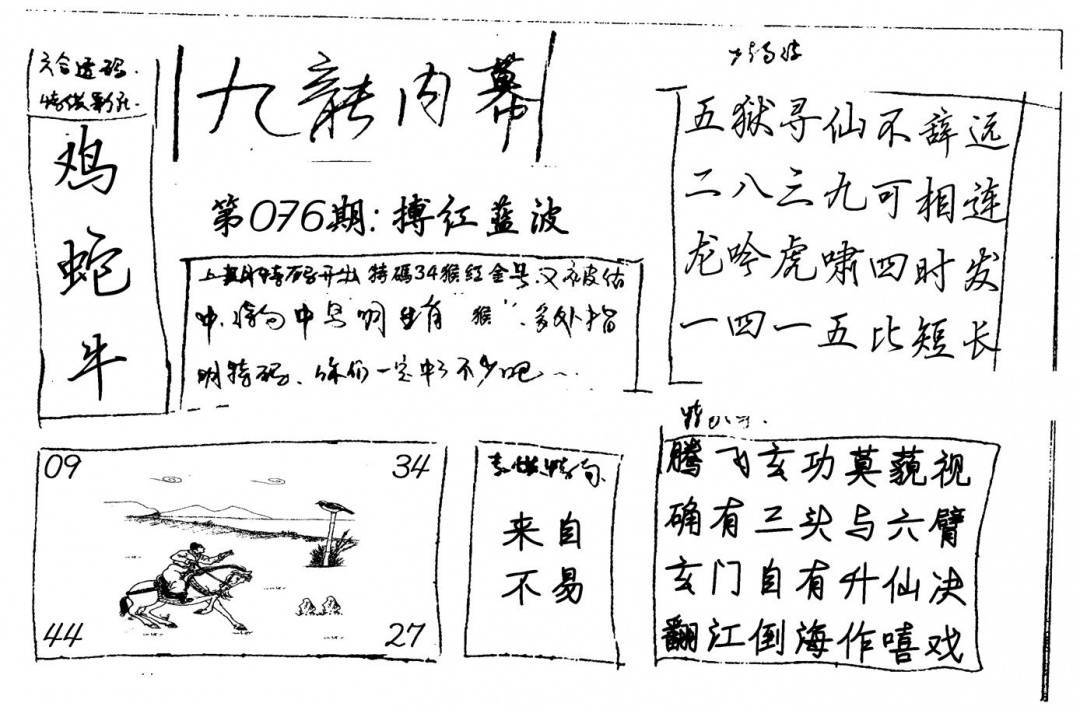 六合透码.
鸡
蛇
牛
九龍内幕
第076期:搏红蓝波
上期特码开出特碼34猴红金号又被估
中.诗句中号明里有“猴”.多处指
明特码.你们一定中了不少吧
五狱寻仙不辞远
二八三九可相连
龙吟虎啸四时发
一四一五比短长
09
34
44
27
来自
不易
腾飞玄功莫藐视
确有三头与六臂
玄门自有升仙决
翻江倒海作嘻戏